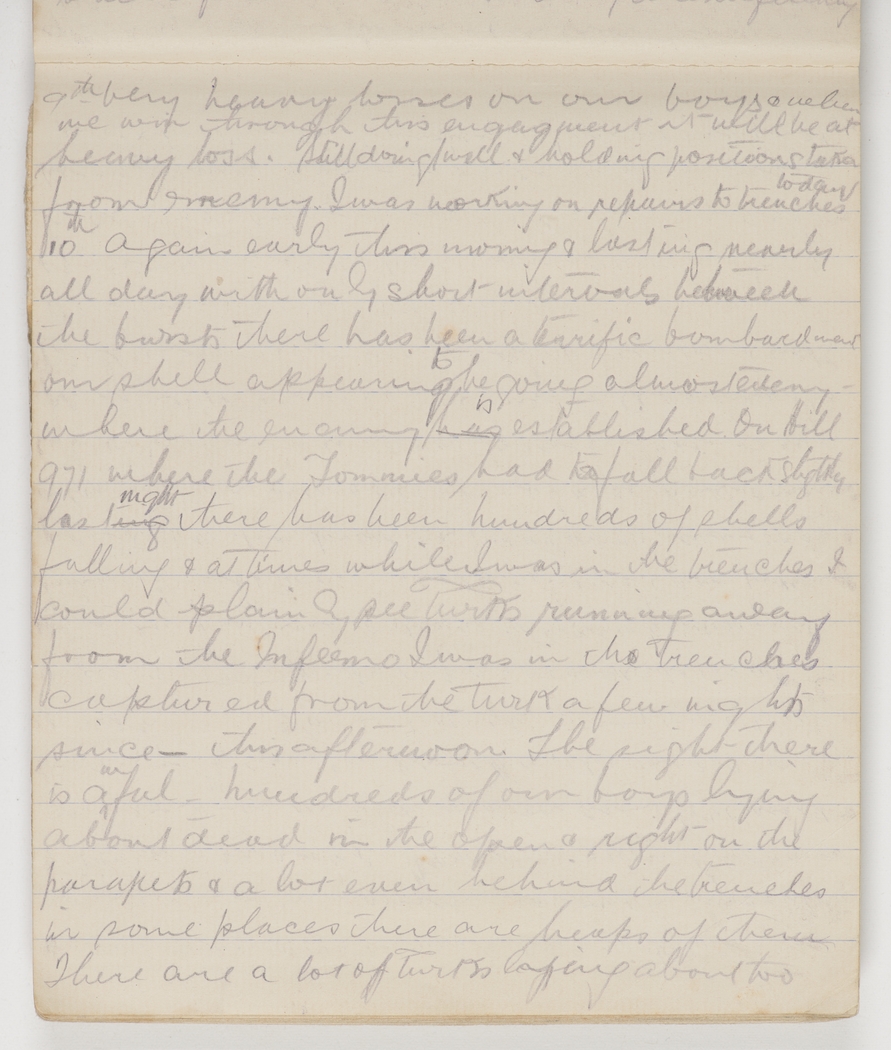 9th Very heavy losses on our boys & when
we win through this engagment it will be at
heavy loss. Still doing well & holding positions taken
today
from enemy. I was working on repairs to trenches
10th Again early this morning & lasting nearly
all day with only short intervals between
the bursts there has been a terrific bombardment
our shell appearing to be going almost every-
where the enemy is established. On Hill
971 where the Tommies had to fall back slightly
last night there has been hundreds of shells
falling & at times while I was in the trenches I
could plainly see Turks running away
from the Inferno I was in the Trenches
captured from the Turk a few nights
since — this afternoon. The sight there
is awful - hundreds of our boys lying
about dead in the open & right on the
parapets & a lot even behind the trenches
in some places there are heaps of them
There are a lot of Turks laying about too